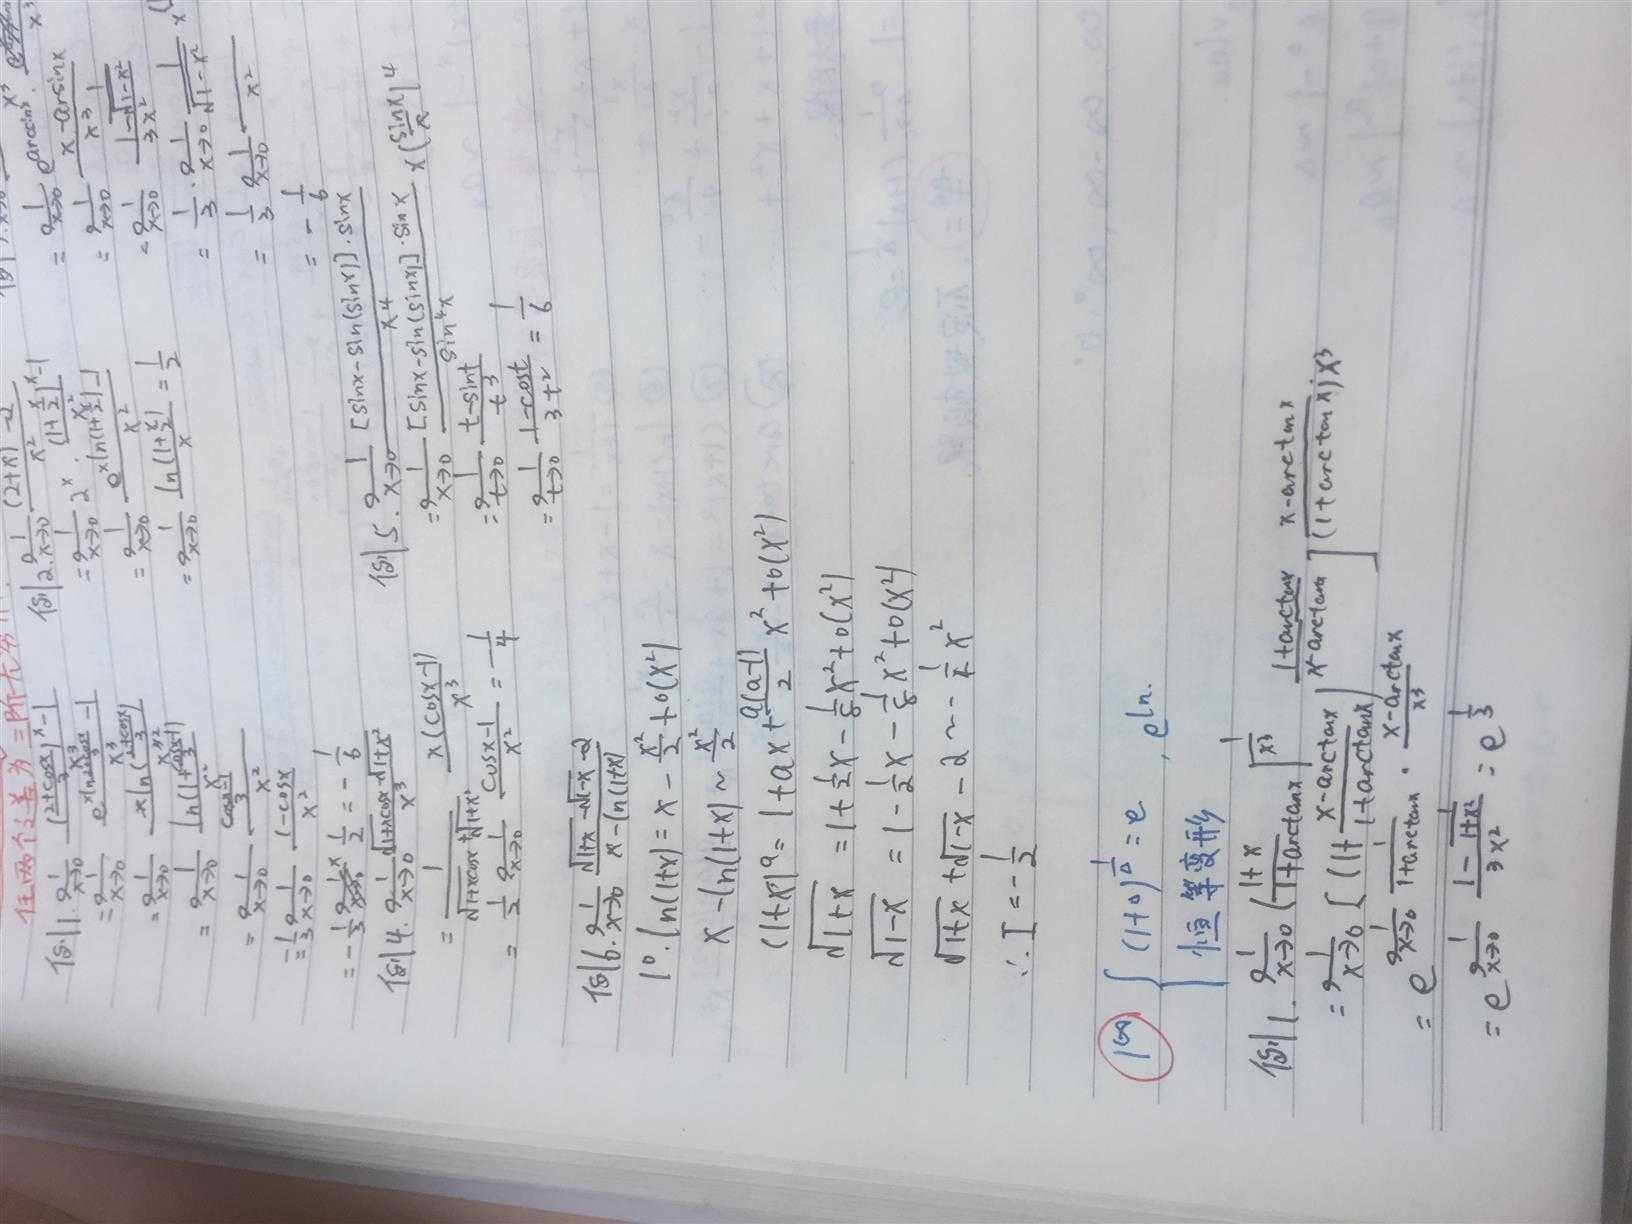 任两个之差为
例1. lim x→0 ((2+cosx)/3)^x - 1 / x³
= lim x→0 e^(x ln (2+cosx)/3) - 1 / x³
= lim x→0 x ln((2+cosx)/3) / x³
= lim x→0 ln(1+(cosx-1)/3) / x²
= lim x→0 (cosx-1)/3 / x²
= -1/3 lim x→0 1-cosx / x²
= -1/3 × 1/2 = -1/6
例2. lim x→0 (2+x)^x - 2^x / x²
= lim x→0 2^x · (1+x/2)^x - 1 / x²
= lim x→0 e^(x ln(1+x/2)) - 1 / x²
= lim x→0 ln(1+x/2) / x = 1/2
= lim x→0 e^(arcsinx) · x-arcsinx / x³
= lim x→0 1 - 1/√(1-x²) / 3x²
= 1/3 · lim x→0 1/√(1-x²) ×
= 1/3 lim x→0 / x²
= -1/6
例4. lim x→0 √(1+xcosx) - √(1+x²) / x³
= 1/(√(1+xcosx)+√(1+x²)) x(cosx-1) / x³
= 1/2 lim x→0 cosx-1 / x² = -1/4
例5. lim x→0 [sinx-sin(sinx)]·sinx / x⁴
= lim x→0 [sinx-sin(sinx)]·sinx / sin⁴x × (sinx/x)⁴
= lim t→0 t-sint / t³
= lim t→0 1-cost / 3t² = 1/6
例6. lim x→0 √(1+x) - √(1-x) - 2 / x-ln(1+x)
1°. ln(1+x) = x - x²/2 + o(x²)
x-ln(1+x) ~ x²/2
(1+x)^a = 1+ax+ a(a-1)/2 x² + o(x²)
√(1+x) = 1+1/2x - 1/8x² + o(x²)
√(1-x) = 1-1/2x - 1/8x² + o(x²)
√(1+x) + √(1-x) - 2 ~ -1/4 x²
∴ I = -1/2
1^∞ { (1+Δ)^(1/Δ) = e , e^ln.
恒等变形
例1. lim x→0 (1+x / 1+arctanx)^(1/x³)
= lim x→0 [(1+ x-arctanx / 1+arctanx)^(1+arctanx / x-arctanx)]^(x-arctanx / (1+arctanx)x³)
= e^(lim x→0 1/(1+arctanx) · x-arctanx / x³)
= e^(lim x→0 1 - 1/(1+x²) / 3x²) = e^(1/3)